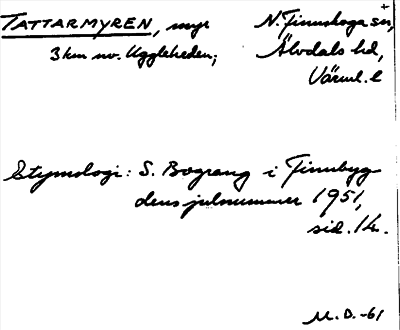 TATTARMYREN, myr N. Finnskoga sn,
3 km nv. Uggleheden; Älvdals hd,
Värml. l
Etymologi: S. Bograng i Finnbyg-
dens julnummer 1951,
sid. 14.
M.D.-61